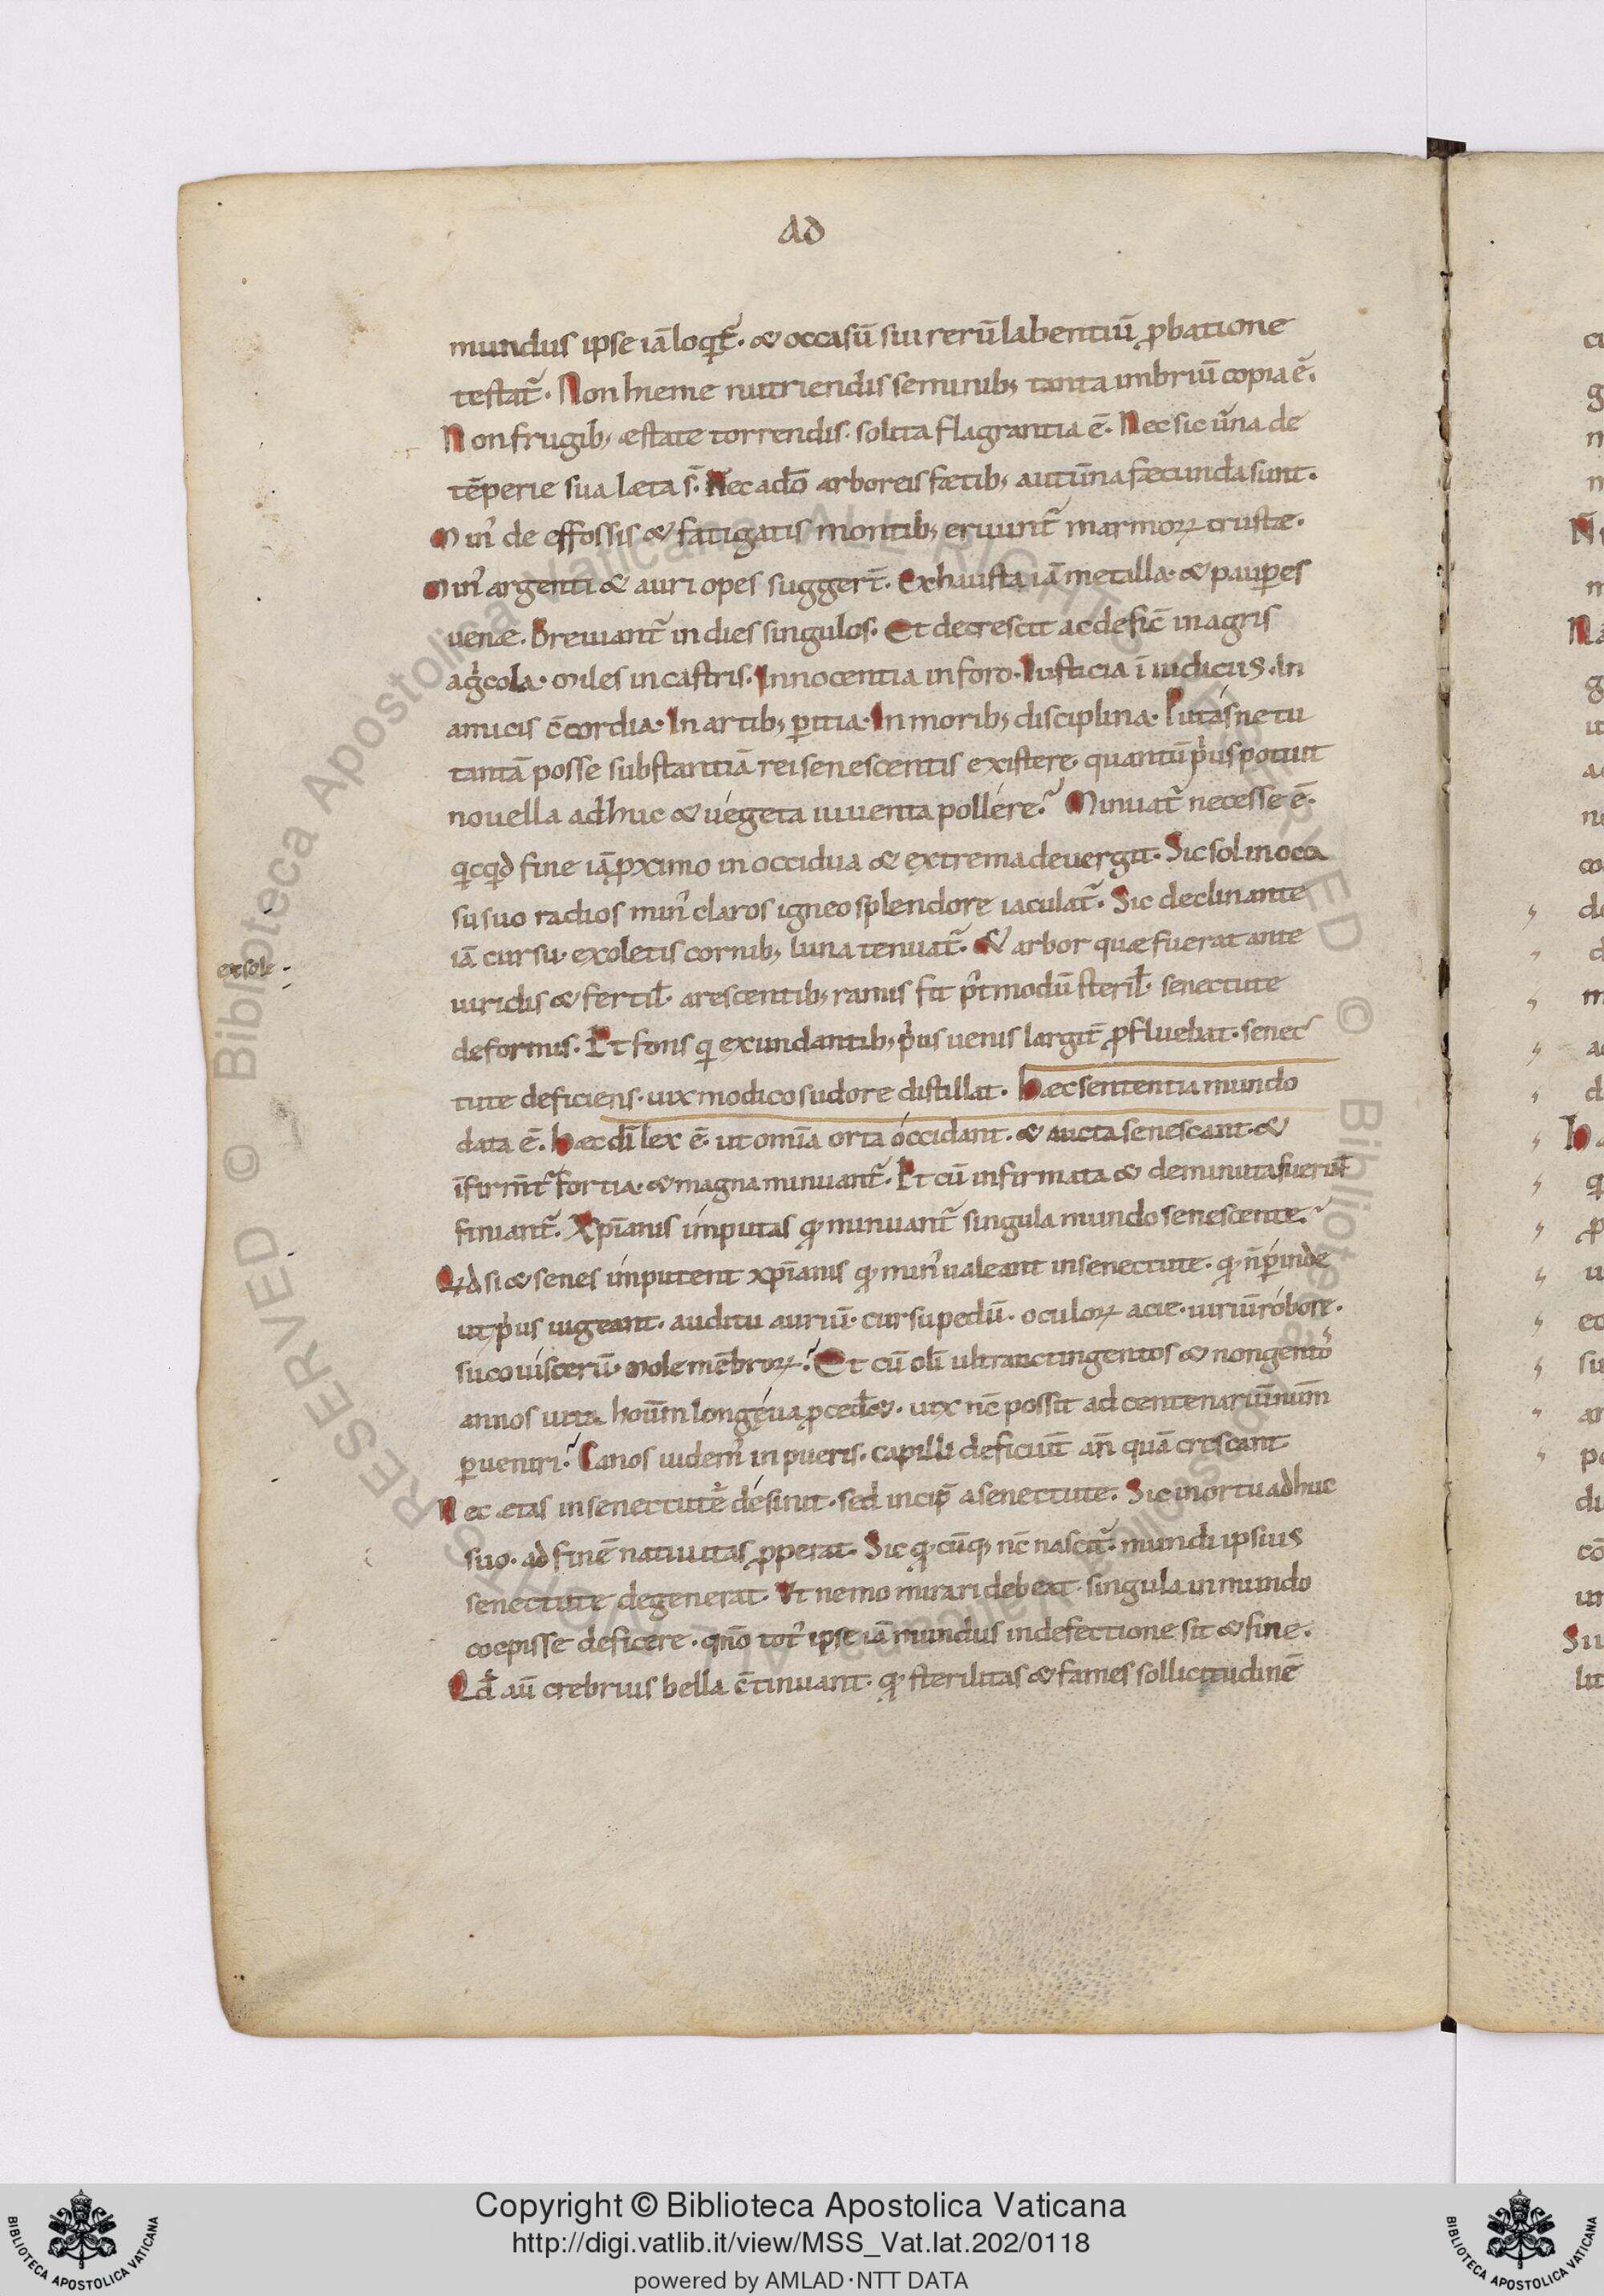 AD
mundus ipse iā loqit̄᷑. & occasū sui rerū labentiū ꝓbatione
testat᷑. Non hieme nutriendis seminib; tanta imbriū copia ē.
Non frugib; æstate torrendis. solita flagrantia ē. Nec sic ūna de
tēperie sua læta s̄. Nec adō arboreis fætib; autūna fæcunda sunt.
Minꝰ de effossis & fatigatis montib; eruunt᷑ marmoꝝ crustæ.
Minꝰ argenti & auri opes suggerт̄. Exhausta iā metalla. & pauꝑes
uenæ. Breuiant᷑ in dies singulos. Et decrescit ac defic̄ in agris
agͥcola. Miles in castris. Innocentia in foro. Iusticia ī iudiciis. In
amicis c̄cordia. In artib; ꝑitia. In moribꝫ disciplina. Putásne tu
tantā posse substantiā rei senescentis existere. quantū pͥus potuit
nouella adhuc & uégeta iuuenta pollére? Minuat᷑ necesse ē.
qicqid fine iā ꝓximo in occidua & extrema deuergit. Sic sol in occa
su suo radios minꝰ claros igneo splendore iaculat᷑. Sic declinante
iā cursu. exoletis cornib; luna tenuat᷑. & arbor quæ fuerat ante
exsole
uiridis & fertil̄. arescentib; ramis fit p̄tmodū steril̄. senectute
deformis. Et fons qi exundantib; pͥus uenis largit̄ ꝓfluebat. senec
tute deficiens. uix modico sudore distillat. hæc sententia mundo
data ē. hæc dī lex ē. ut omīa orta óccidant. & aucta senescant. &
īfirm̄t᷑ fortia. & magna minuant᷑. Et cū infirmata & deminuta fuerīt
finiant᷑. Xp̄ianis ímputas qđ minuant᷑ singula mundo senescente?
Qđ si & senes ímputent xp̄ianis qđ minꝰ ualeant in senectute. qđ n̄ ꝑinde
ut pͥus uigeant. auditu auriū. cursu pedū. oculoꝝ acie. uiriū róbore.
suco uíscerū. mole mēbroꝝ? Et cū olī ultra octingentos & nongentos
annos uita hoūm longéua ꝓced̄&. uix nc̄ possit ad centenariū nūm
ꝑueniri? Canos uidemꝰ in pueris. capilli deficiūt an̄ quā crescant
Nec ætas in senectute désinit. sed incip̄ a senectute. Sic in ortu adhuc
suo. ad finē natiuitas ꝓperat. Sic qđcūq; nc̄ nascit᷑. mundi ipsius
senectute degenerat. Vt nemo mirari debeat. singula in mundo
coepisse deficere. qn̄o totꝰ ipse iā mundus in defectione sit & fine.
Qđ aū crebrius bella c̄tinuant. qđ sterilitas & fames sollicitudinē
Copyright © Biblioteca Apostolica Vaticana
http://digi.vatlib.it/view/MSS_Vat.lat.202/0118
powered by AMLAD·NTT DATA